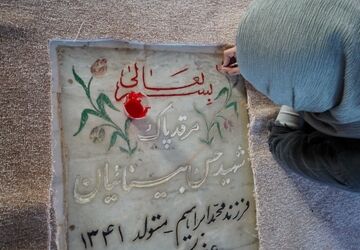 بسمه تعالی
مرقد پاک
شهید حسن سینائیان
فرزند محمد ابراهیم متولد ۱۳۴۱